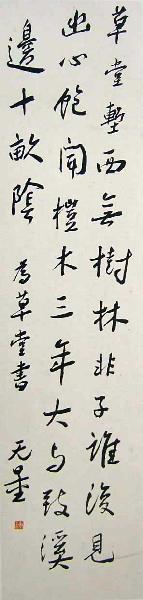 草堂塹西無樹林非子誰復見
幽心飽聞榿木三年大與致溪
邊十畝陰
為草堂書 无量